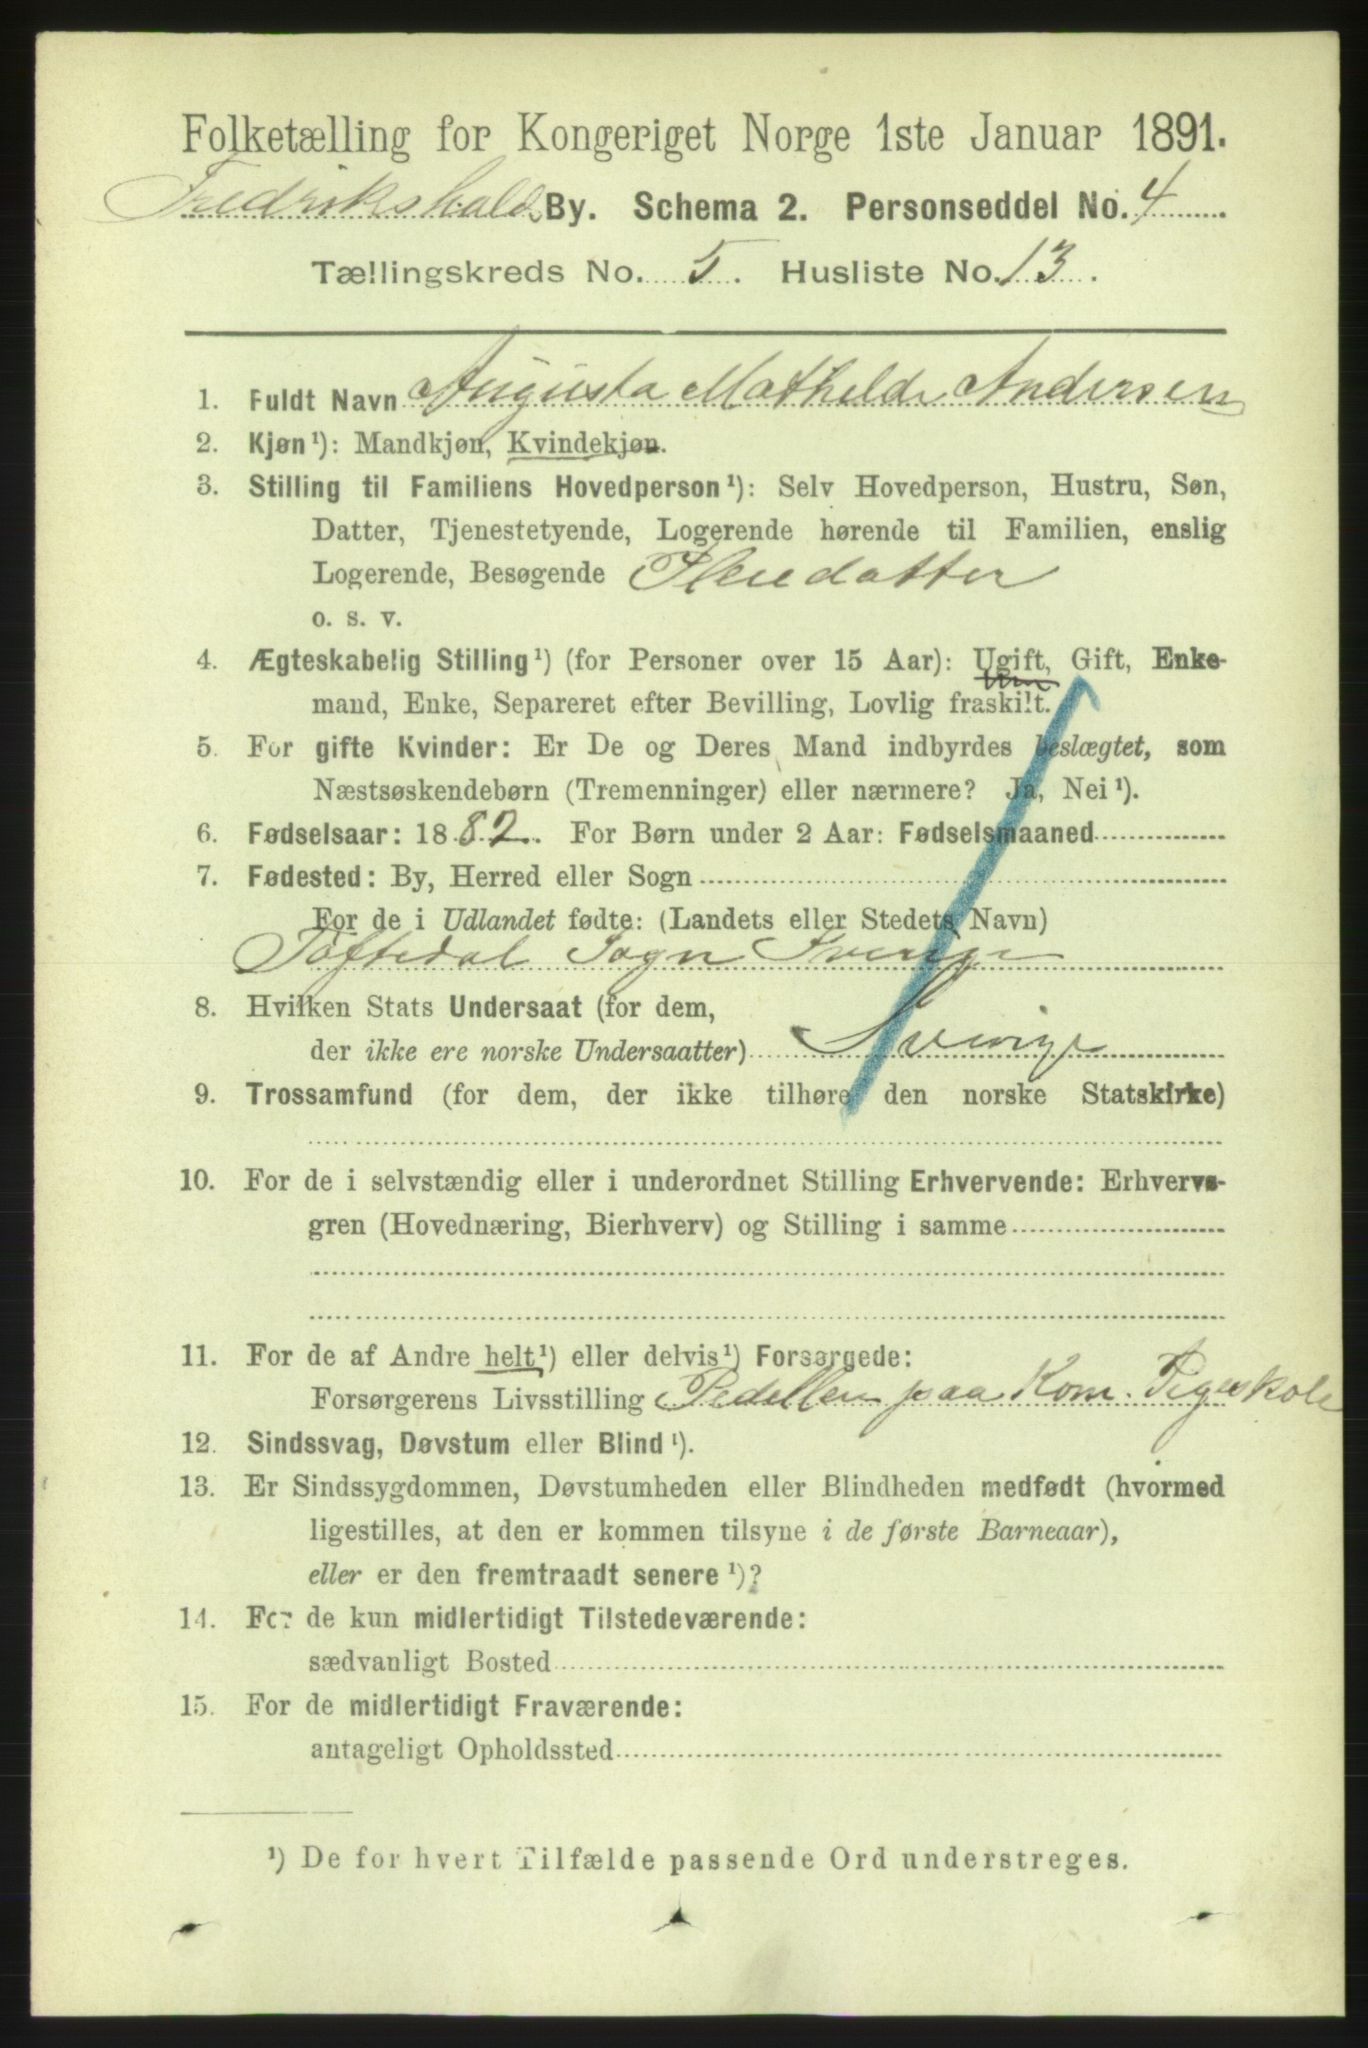 Folketælling for Kongeriget Norge 1ste Januar 1891.
Fredrikshalds By. Schema 2. Personseddel No. 4
Tællingskreds No. 5. Husliste No. 13.
1. Fuldt Navn Augusta Mathilde Andersen
2. Kjøn¹): Mandkjøn, Kvindekjøn.
3. Stilling til Familiens Hovedperson¹): Selv Hovedperson, Hustru, Søn,
Datter, Tjenestetyende, Logerende hørende til Familien, enslig
Logerende, Besøgende Pleiedatter
o. s. v.
4. Ægteskabelig Stilling¹) (for Personer over 15 Aar): Ugift, Gift, Enke-
mand, Enke, Separeret efter Bevilling, Lovlig fraskilt.
5. For gifte Kvinder: Er De og Deres Mand indbyrdes beslægtet, som
Næstsøskendebørn (Tremenninger) eller nærmere? Ja, Nei¹).
6. Fødselsaar: 1882. For Børn under 2 Aar: Fødselsmaaned
7. Fødested: By, Herred eller Sogn
For de i Udlandet fødte: (Landets eller Stedets Navn)
Töftedal Sogn Sverige
8. Hvilken Stats Undersaat (for dem,
der ikke ere norske Undersaatter) Sverige
9. Trossamfund (for dem, der ikke tilhøre den norske Statskirke)
10. For de i selvstændig eller i underordnet Stilling Erhvervende: Erhvervs-
gren (Hovednæring, Bierhverv) og Stilling i samme
11. For de af Andre helt¹) eller delvis¹) Forsørgede:
Forsørgerens Livsstilling Pedellen paa Kom. Pigeskole
12. Sindssvag, Døvstum eller Blind¹).
13. Er Sindssygdommen, Døvstumheden eller Blindheden medfødt (hvormed
ligestilles, at den er kommen tilsyne i de første Barneaar),
eller er den fremtraadt senere¹)?
14. For de kun midlertidigt Tilstedeværende:
sædvanligt Bosted
15. For de midlertidigt Fraværende:
antageligt Opholdssted
¹) De for hvert Tilfælde passende Ord understreges.